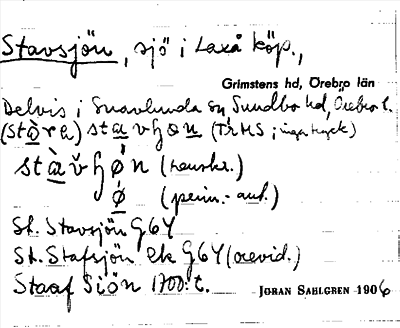 Stavsjön, sjö i Laxå köp.,
Grimstens hd, Örebro län
Delvis i Snavlunda sn, Sundbo hd, Örebro l.
(stạ̀ra) stạvɧən (TrHS; inga tryck)
stạ̀vɧǿn (
ǿ (
St. Stavsjön G6Y
St. Stafsjön ek G6Y (orevid.)
Staaf Siön 1700:t.
JÖRAN SAHLGREN 1906